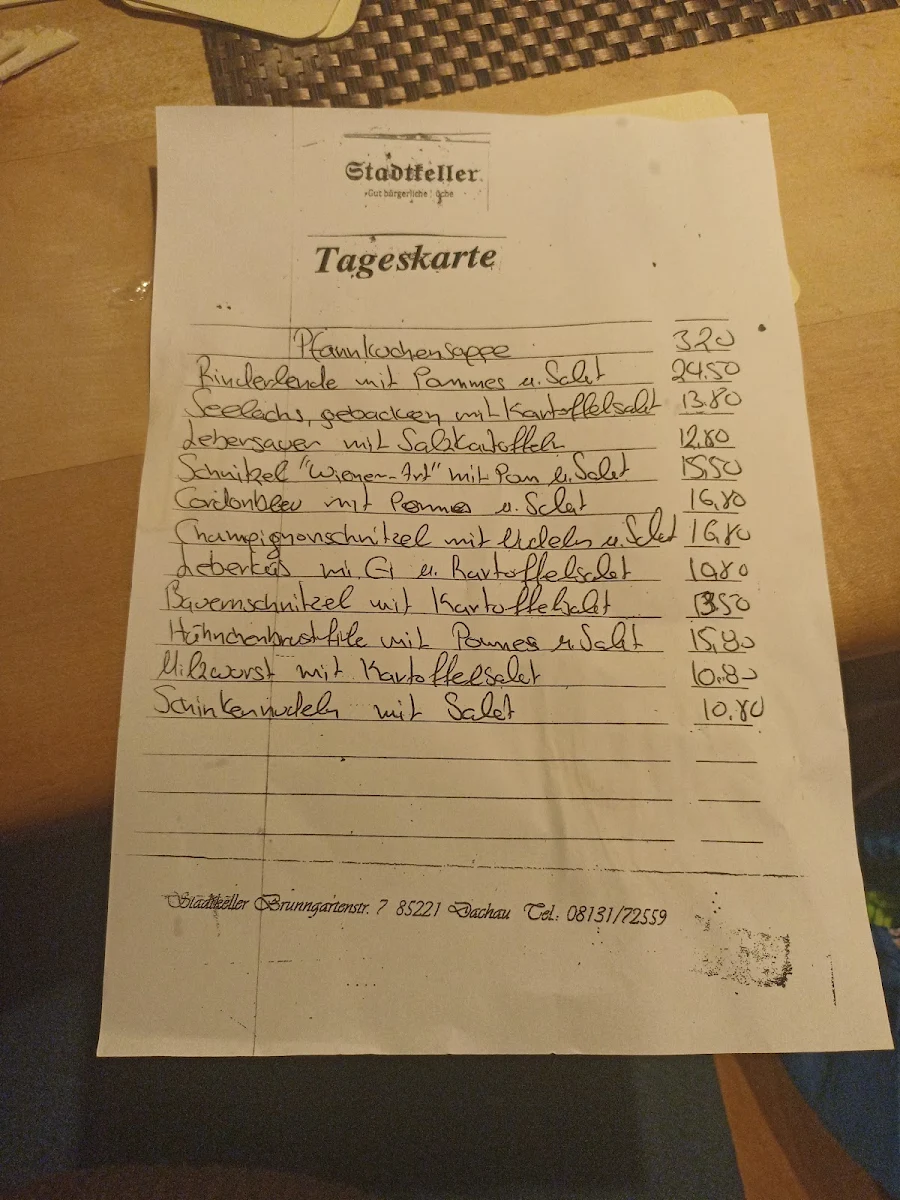 Stadtkeller
Gut bürgerliche
Tageskarte
Pfannkuchensuppe 3.20
Rinderlende mit Pommes u. Salat 24.50
Seelachs, gebacken mit Kartoffelsalat 13.80
Lebersauer mit Salzkartoffeln 12,80
Schnitzel "Wiener-Art" mit Pom u. Salat 15,50
Cordonbleu mit Pommes u. Salat 16,80
Champignonschnitzel mit Nudeln u. Salat 16,80
Leberkäs mi. Ei u. Kartoffelsalat 10.80
Bauernschnitzel mit Kartoffelsalat
Hähnchenbrustfile mit Pommes u. Salat 15,80
Milzwurst mit Kartoffelsalat 10.80
Schinkennudeln mit Salat 10.80
Stadtkeller Brunngartenstr. 7 85221 Dachau Tel.: 08131/72559